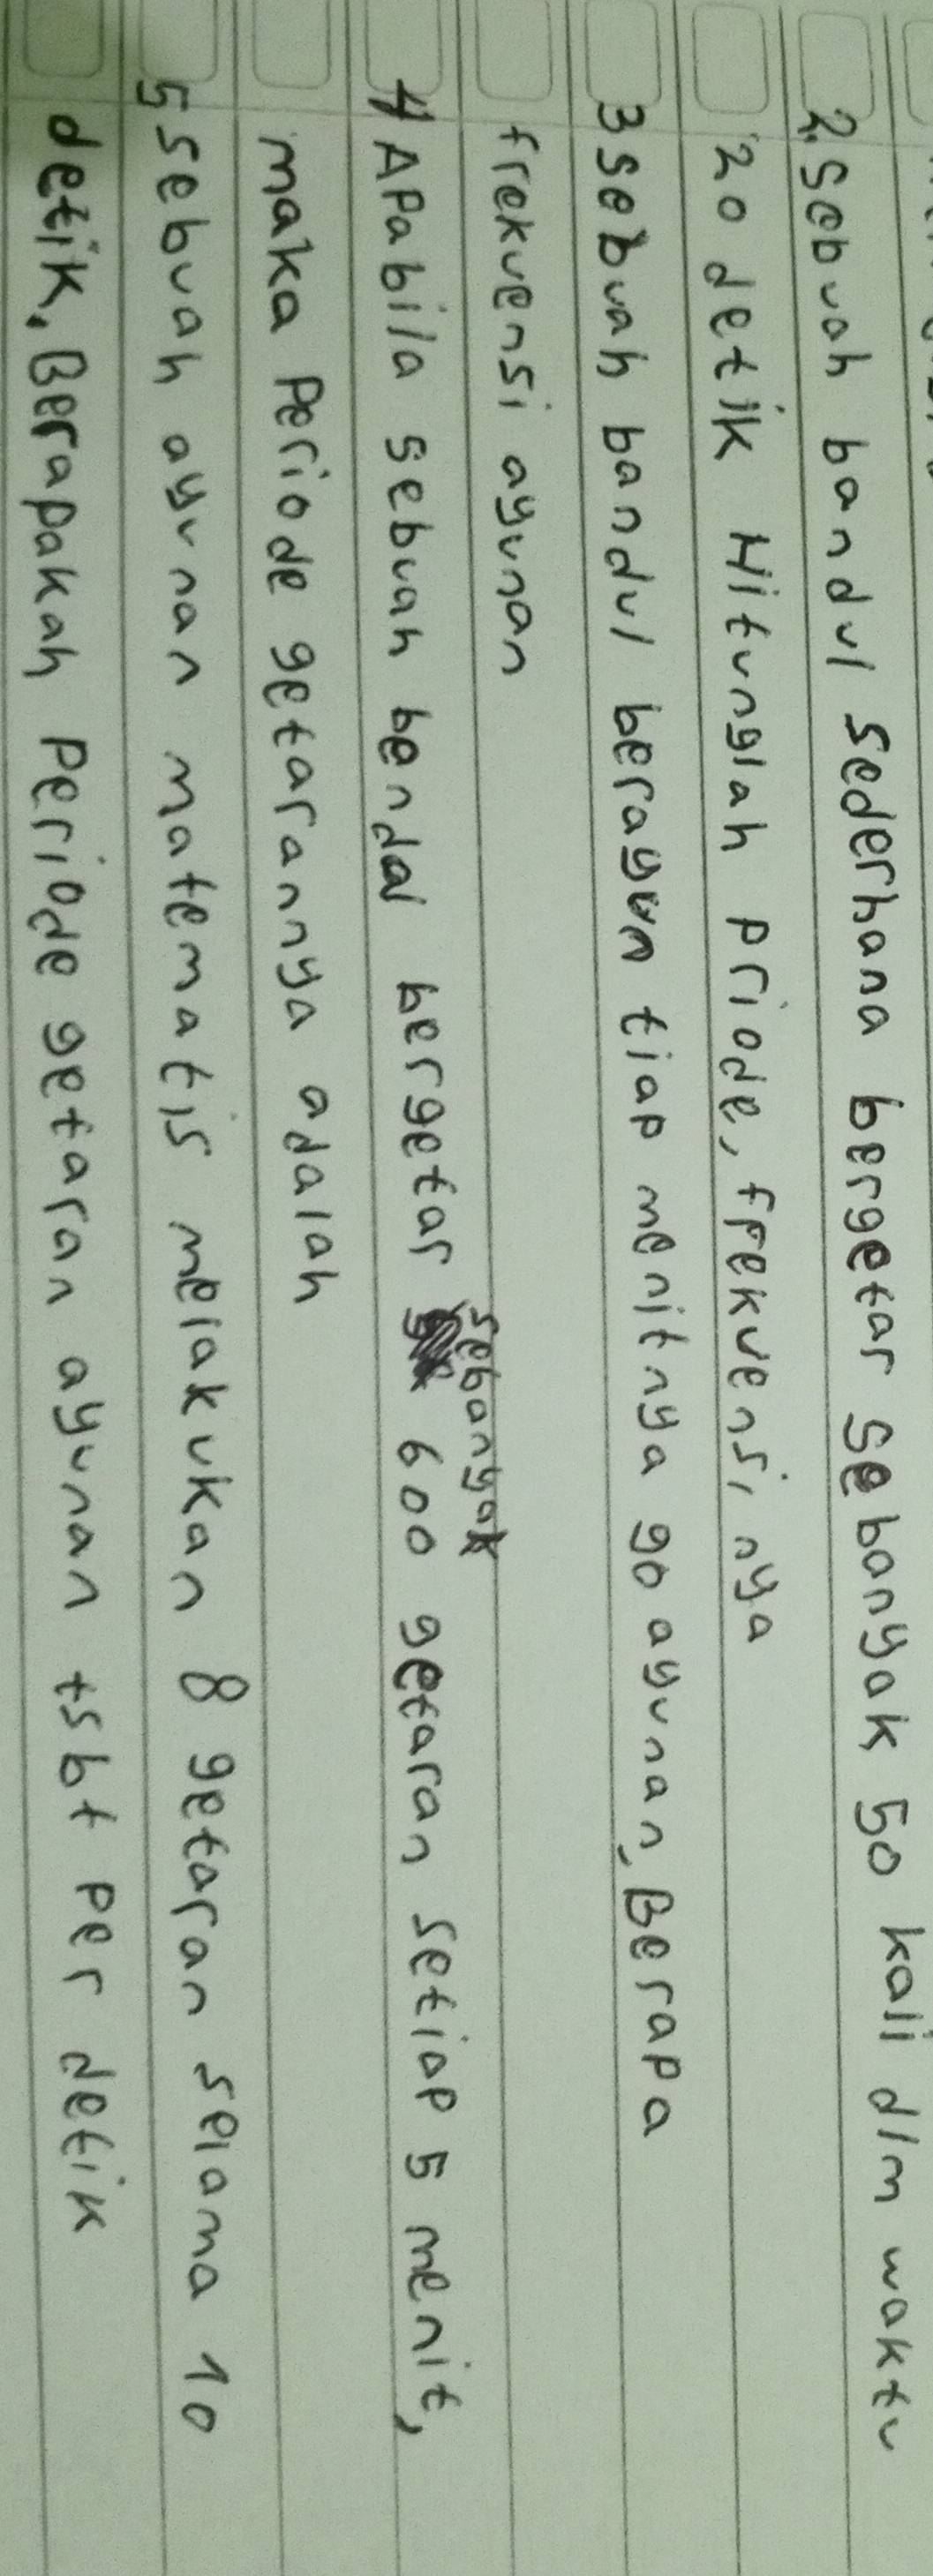 2. Sebuah bandul sederhana bergetar sebanyak 50 kali dlm waktu
20 detik Hitunglah priode, frekuensi nya
3 sebuah bandul berayun tiap menitnya 90 ayunan, Berapa
frekuensi ayunan
sebanyak
4 Apabila sebuah benda bergetar 600 getaran setiap 5 menit,
maka Periode getarannya adalah
5 sebuah ayunan matematis melakukan 8 getaran selama 10
detik. Berapakah Periode getaran ayunan tsbt per detik